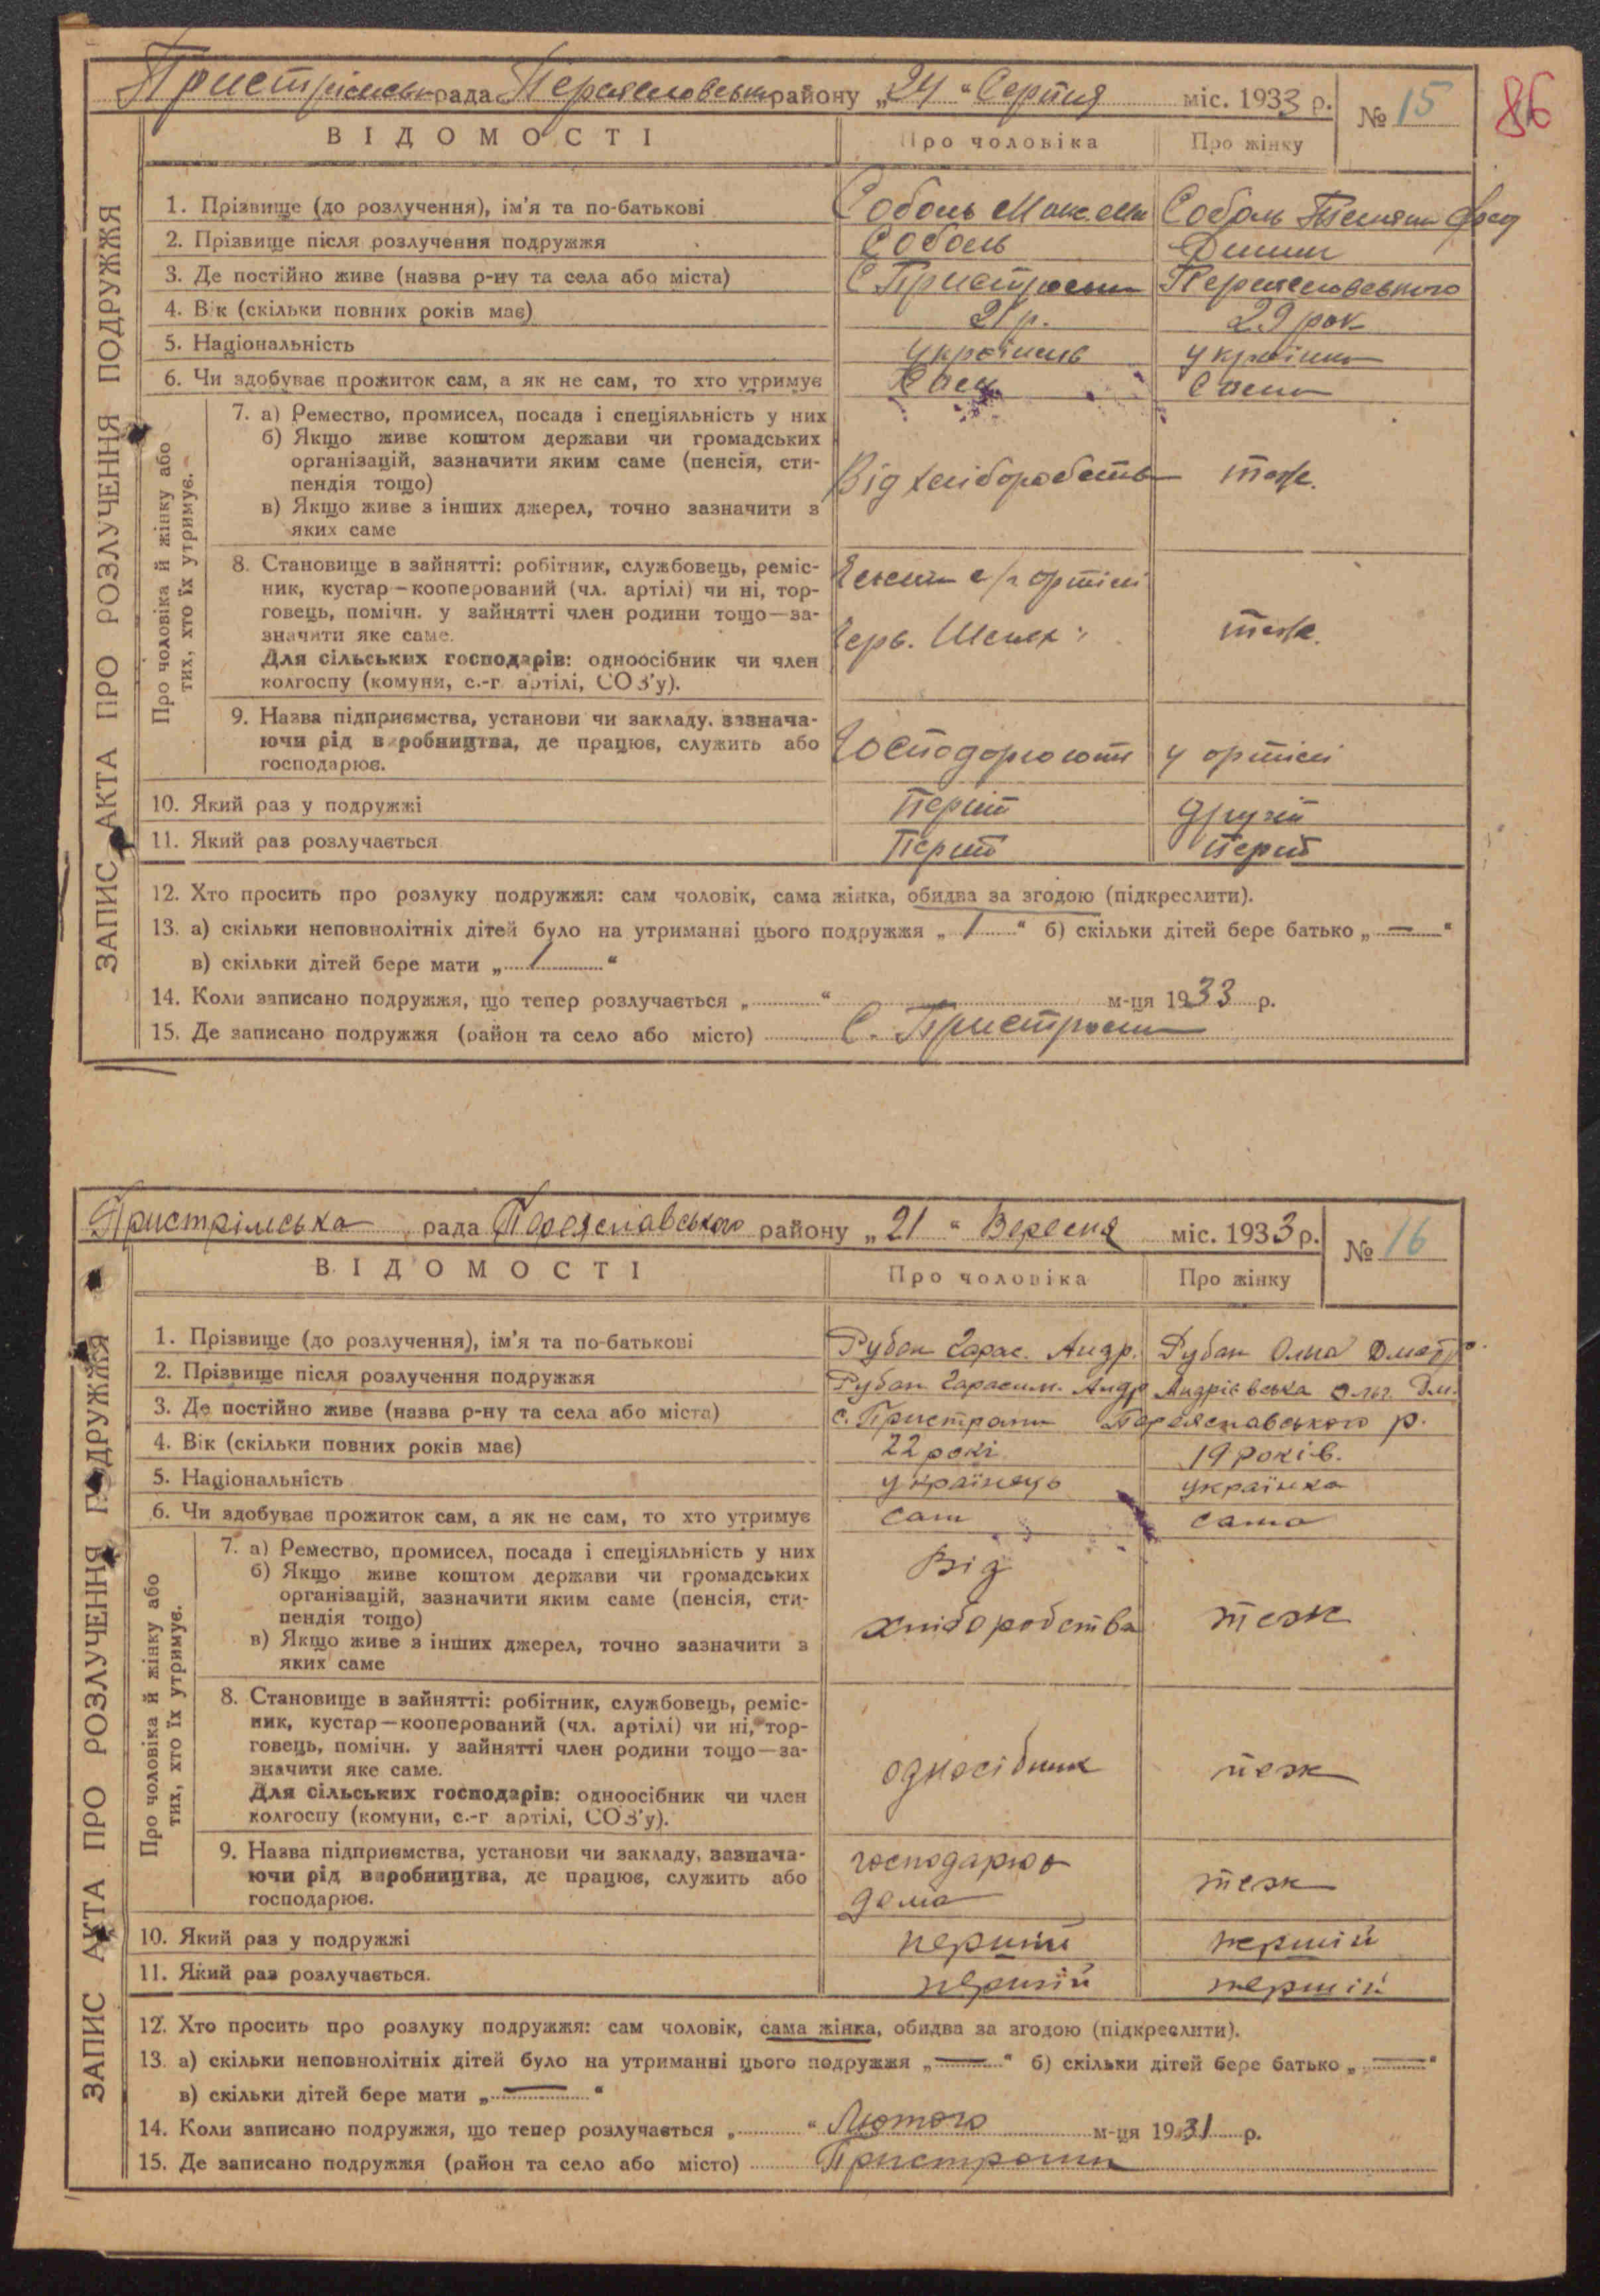 86
Пристрімськ рада Переяславськ района „24“ Серпня міс. 1933 р. № 15
ЗАПИС АКТА ПРО РОЗЛУЧЕННЯ ПОДРУЖЖЯ
ВІДОМОСТІ Про чоловіка Про жінку
1. Прізвище (до розлучення), ім'я та по-батькові Соболь Соболь
2. Прізвище після розлучення подружжя Соболь
3. Де постійно живе (назва р-ну та села або міста) С Пристроми Переяславського
4. Вік (скільки повних років має) 21 р. 29 рок
5. Національність українець українка
6. Чи здобуває прожиток сам, а як не сам, то хто утримує Сам Сама
Про чоловіка й жінку або
тих, хто їх утримує.
7. а) Ремество, промисел, посада і спеціяльність у них
б) Якщо живе коштом держави чи громадських
організацій, зазначити яким саме (пенсія, сти-
пендія тощо)
в) Якщо живе з інших джерел, точно зазначити з
яких саме
Від хліборобства теж.
8. Становище в зайнятті: робітник, службовець, реміс-
ник, кустар—кооперований (чл. артілі) чи ні, тор-
говець, помічн. у зайнятті член родини тощо—за-
значити яке саме.
Для сільських господарів: одноосібник чи член
колгоспу (комуни, с.-г артілі, СОЗ'у).
Член с/г артілі
Черв. Шлях теж.
9. Назва підприємства, установи чи закладу, зазнача-
ючи рід виробництва, де працює, служить або
господарює.
Господорюють у артілі
10. Який раз у подружжі Перший Другий
11. Який раз розлучається Перший Перший
12. Хто просить про розлуку подружжя: сам чоловік, сама жінка, обидва за згодою (підкреслити).
13. а) скільки неповнолітніх дітей було на утриманні цього подружжя „ 1 “ б) скільки дітей бере батько „ — “
в) скільки дітей бере мати „ 1 “
14. Коли записано подружжя, що тепер розлучається „ “ м-ця 1933 р.
15. Де записано подружжя (район та село або місто) С. Пристроми
Пристрімська рада Переяславського району „21“ Вересня міс. 1933 р. № 16
ЗАПИС АКТА ПРО РОЗЛУЧЕННЯ ПОДРУЖЖЯ
ВІДОМОСТІ Про чоловіка Про жінку
1. Прізвище (до розлучення), ім'я та по-батькові Рубан Гарас. Андр. Рубан Олга Дмитр.
2. Прізвище після розлучення подружжя Рубан Гарасим. Андр Андрієвська Ольг. Дм.
3. Де постійно живе (назва р-ну та села або міста) с. Пристроми Переяславського р.
4. Вік (скільки повних років має) 22 рокі 19 років.
5. Національність українець українка
6. Чи здобуває прожиток сам, а як не сам, то хто утримує сам сама
Про чоловіка й жінку або
тих, хто їх утримує.
7. а) Ремество, промисел, посада і спеціяльність у них
б) Якщо живе коштом держави чи громадських
організацій, зазначити яким саме (пенсія, сти-
пендія тощо)
в) Якщо живе з інших джерел, точно зазначити з
яких саме
Від
хліборобства теж
8. Становище в зайнятті: робітник, службовець, реміс-
ник, кустар—кооперований (чл. артілі) чи ні, тор-
говець, помічн. у зайнятті член родини тощо—за-
значити яке саме.
Для сільських господарів: одноосібник чи член
колгоспу (комуни, с.-г артілі, СОЗ'у).
односібник теж
9. Назва підприємства, установи чи закладу, зазнача-
ючи рід виробництва, де працює, служить або
господарює.
господарює
дома теж
10. Який раз у подружжі перший першій
11. Який раз розлучається. першій першій
12. Хто просить про розлуку подружжя: сам чоловік, сама жінка, обидва за згодою (підкреслити).
13. а) скільки неповнолітніх дітей було на утриманні цього подружжя „ — “ б) скільки дітей бере батько „ — “
в) скільки дітей бере мати „ — “
14. Коли записано подружжя, що тепер розлучається „ “ Лютого м-ця 1931 р.
15. Де записано подружжя (район та село або місто) Пристроми